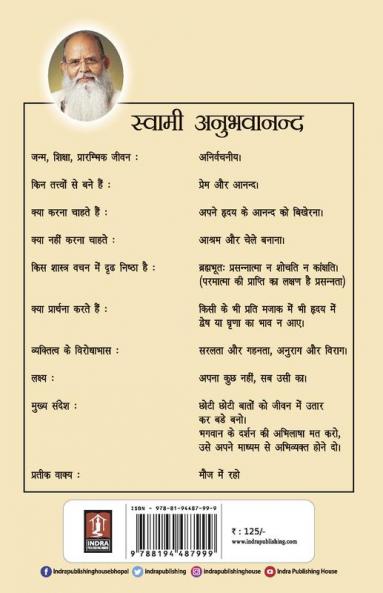 स्वामी अनुभवानन्द
जन्म, शिक्षा, प्रारम्भिक जीवन : अनिर्वचनीय।
किन तत्त्वों से बने हैं : प्रेम और आनन्द।
क्या करना चाहते हैं : अपने हृदय के आनन्द को बिखेरना।
क्या नहीं करना चाहते : आश्रम और चेले बनाना।
किस शास्त्र वचन में दृढ निष्ठा है : ब्रह्मभूतः प्रसन्नात्मा न शोचति न कांक्षति।
(परमात्मा की प्राप्ति का लक्षण है प्रसन्नता)
क्या प्रार्थना करते हैं : किसी के भी प्रति मजाक में भी हृदय में
द्वेष या घृणा का भाव न आए।
व्यक्तित्व के विरोधाभास : सरलता और गहनता, अनुराग और विराग।
लक्ष्य : अपना कुछ नहीं, सब उसी का।
मुख्य संदेश : छोटी छोटी बातों को जीवन में उतार
कर बडे बनो।
भगवान के दर्शन की अभिलाषा मत करो,
उसे अपने माध्यम से अभिव्यक्त होने दो।
प्रतीक वाक्य : मौज में रहो
ISBN - 978-81-94487-99-9
9 788194 487999
INDRA
PUBLISHING HOUSE
₹ : 125/-
www.indrapublishing.com
indrapublishinghousebhopal indrapublishing indrapublishinghouse Indra Publishing House